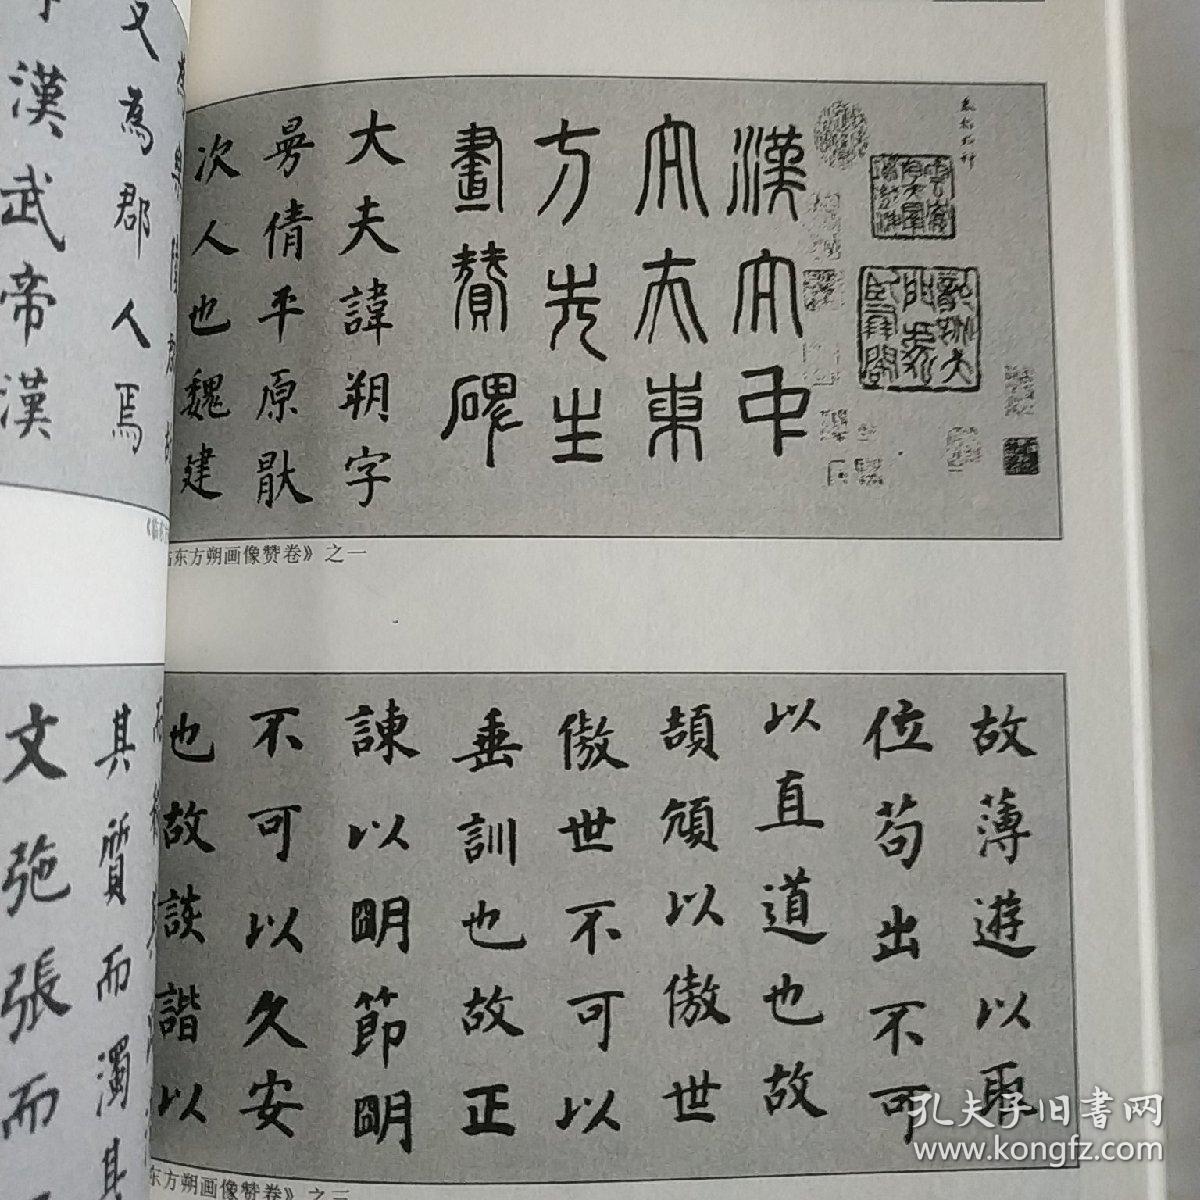 漢宑中
宑大夫東
方先生
畫贊碑
大夫諱朔字
曼倩平原猒
次人也魏建
又為郡人焉
漢武帝漢
临东方朔画像赞卷》之一
故薄遊以取
位苟出不可
以直道也故
頡頏以傲世
傲世不可以
垂訓也故正
諫以明節明
不可以久安
也故談諧以
其質而濁其
文弛張而
东方朔画像赞卷》之三
孔夫子旧書网
www.kongfz.com